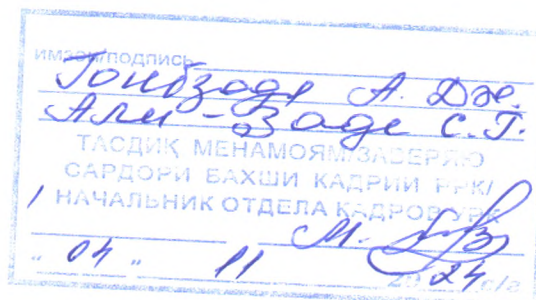 имзои/подпись
Гоибзода А. Дж.
Али-Заде С.Г.
ТАСДИҚ МЕНАМОЯМ/ЗАВЕРЯЮ
САРДОРИ БАХШИ КАДРИИ РРК/
НАЧАЛЬНИК ОТДЕЛА КАДРОВ УРК
М.
"04" 11 2024 с/г